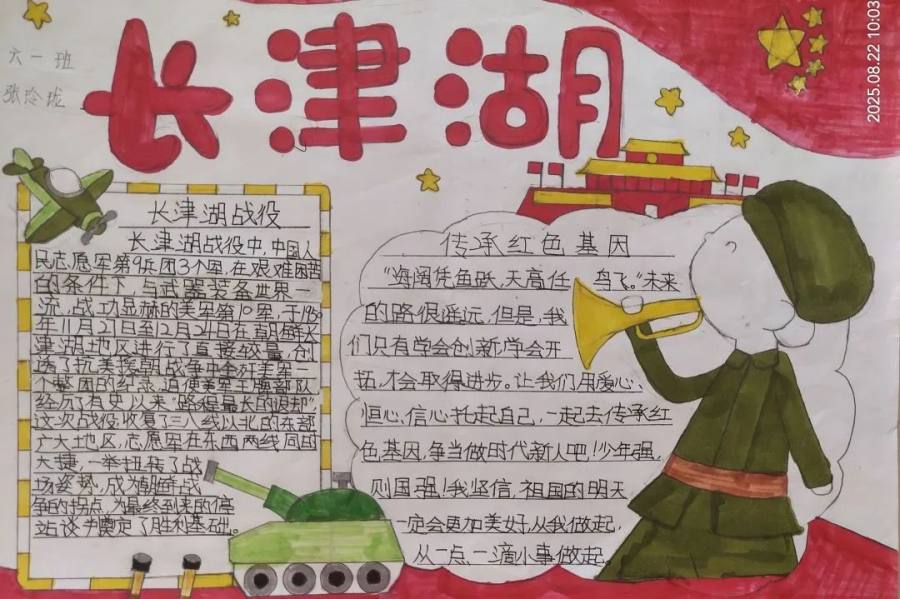 长津湖
六一班
张玲珑
2025.08.22 10:03
长津湖战役
长津湖战役中,中国人
民志愿军第9兵团3个军,在艰难困苦
的条件下,与武器装备世界一
流,战功显赫的美军第10军,于1950
年11月27日至12月24日在朝鲜长
津湖地区进行了直接较量,创
造了抗美援朝战争中全歼美军一
个整团的纪录,迫使美军王牌部队
经历了有史以来“路程最长的退却”
这次战役,收复了三八线以北的东部
广大地区,志愿军在东西两线同时
大捷,一举扭转了战
场姿势,成为朝鲜战
争的拐点,为最终到来的停
站谈判奠定了胜利基础。
传承红色基因
“海阔凭鱼跃,天高任鸟飞。”未来
的路很遥远,但是,我
们只有学会创新,学会开
拓,才会取得进步。让我们用爱心、
恒心、信心托起自己,一起去传承红
色基因,争当做时代新人吧!少年强,
则国强!我坚信,祖国的明天,
一定会更加美好,从我做起,
从一点、一滴小事做起。